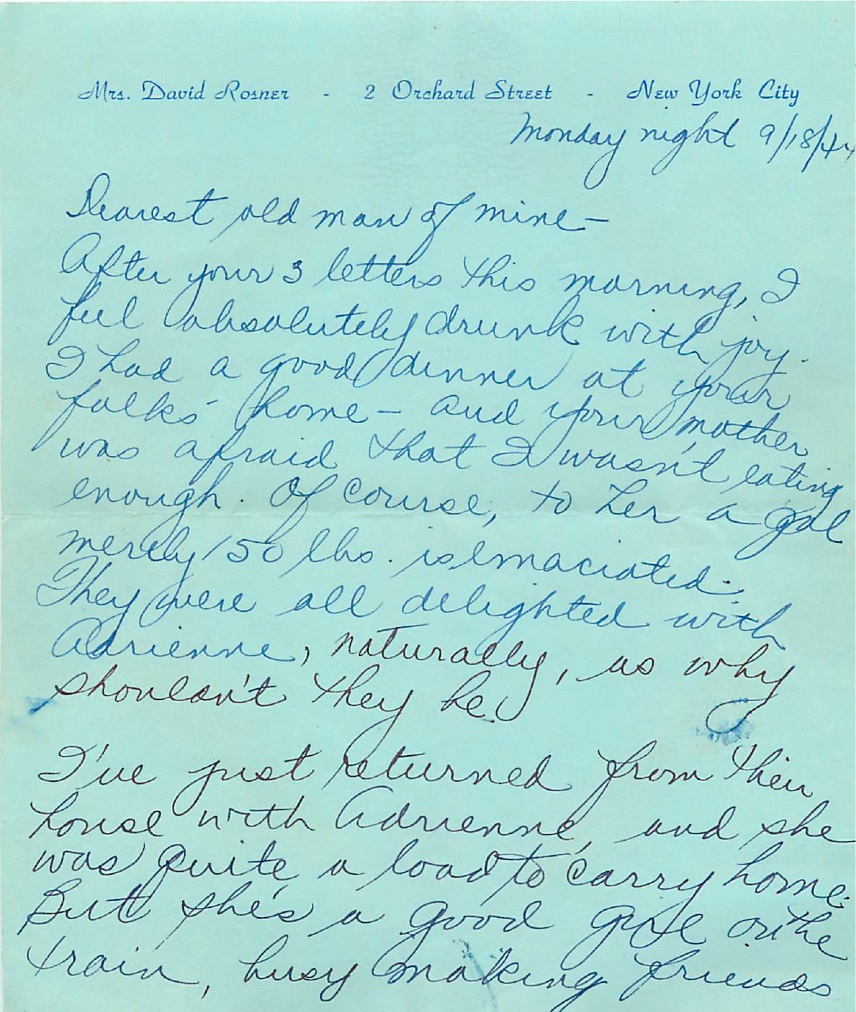 Mrs. David Rosner - 2 Orchard Street - New York City
Monday night 9/18/44
Dearest old man of mine—
After your 3 letters this morning, I
feel absolutely drunk with joy.
I had a good dinner at your
folks' home— and your mother
was afraid that I wasn't eating
enough. Of course, to her a gal
merely 150 lbs. is emaciated.
They were all delighted with
Adrienne, naturally, as why
shouldn't they be.
I've just returned from their
house with Adrienne, and she
was quite a load to carry home.
But she's a good gal on the
train, busy making friends